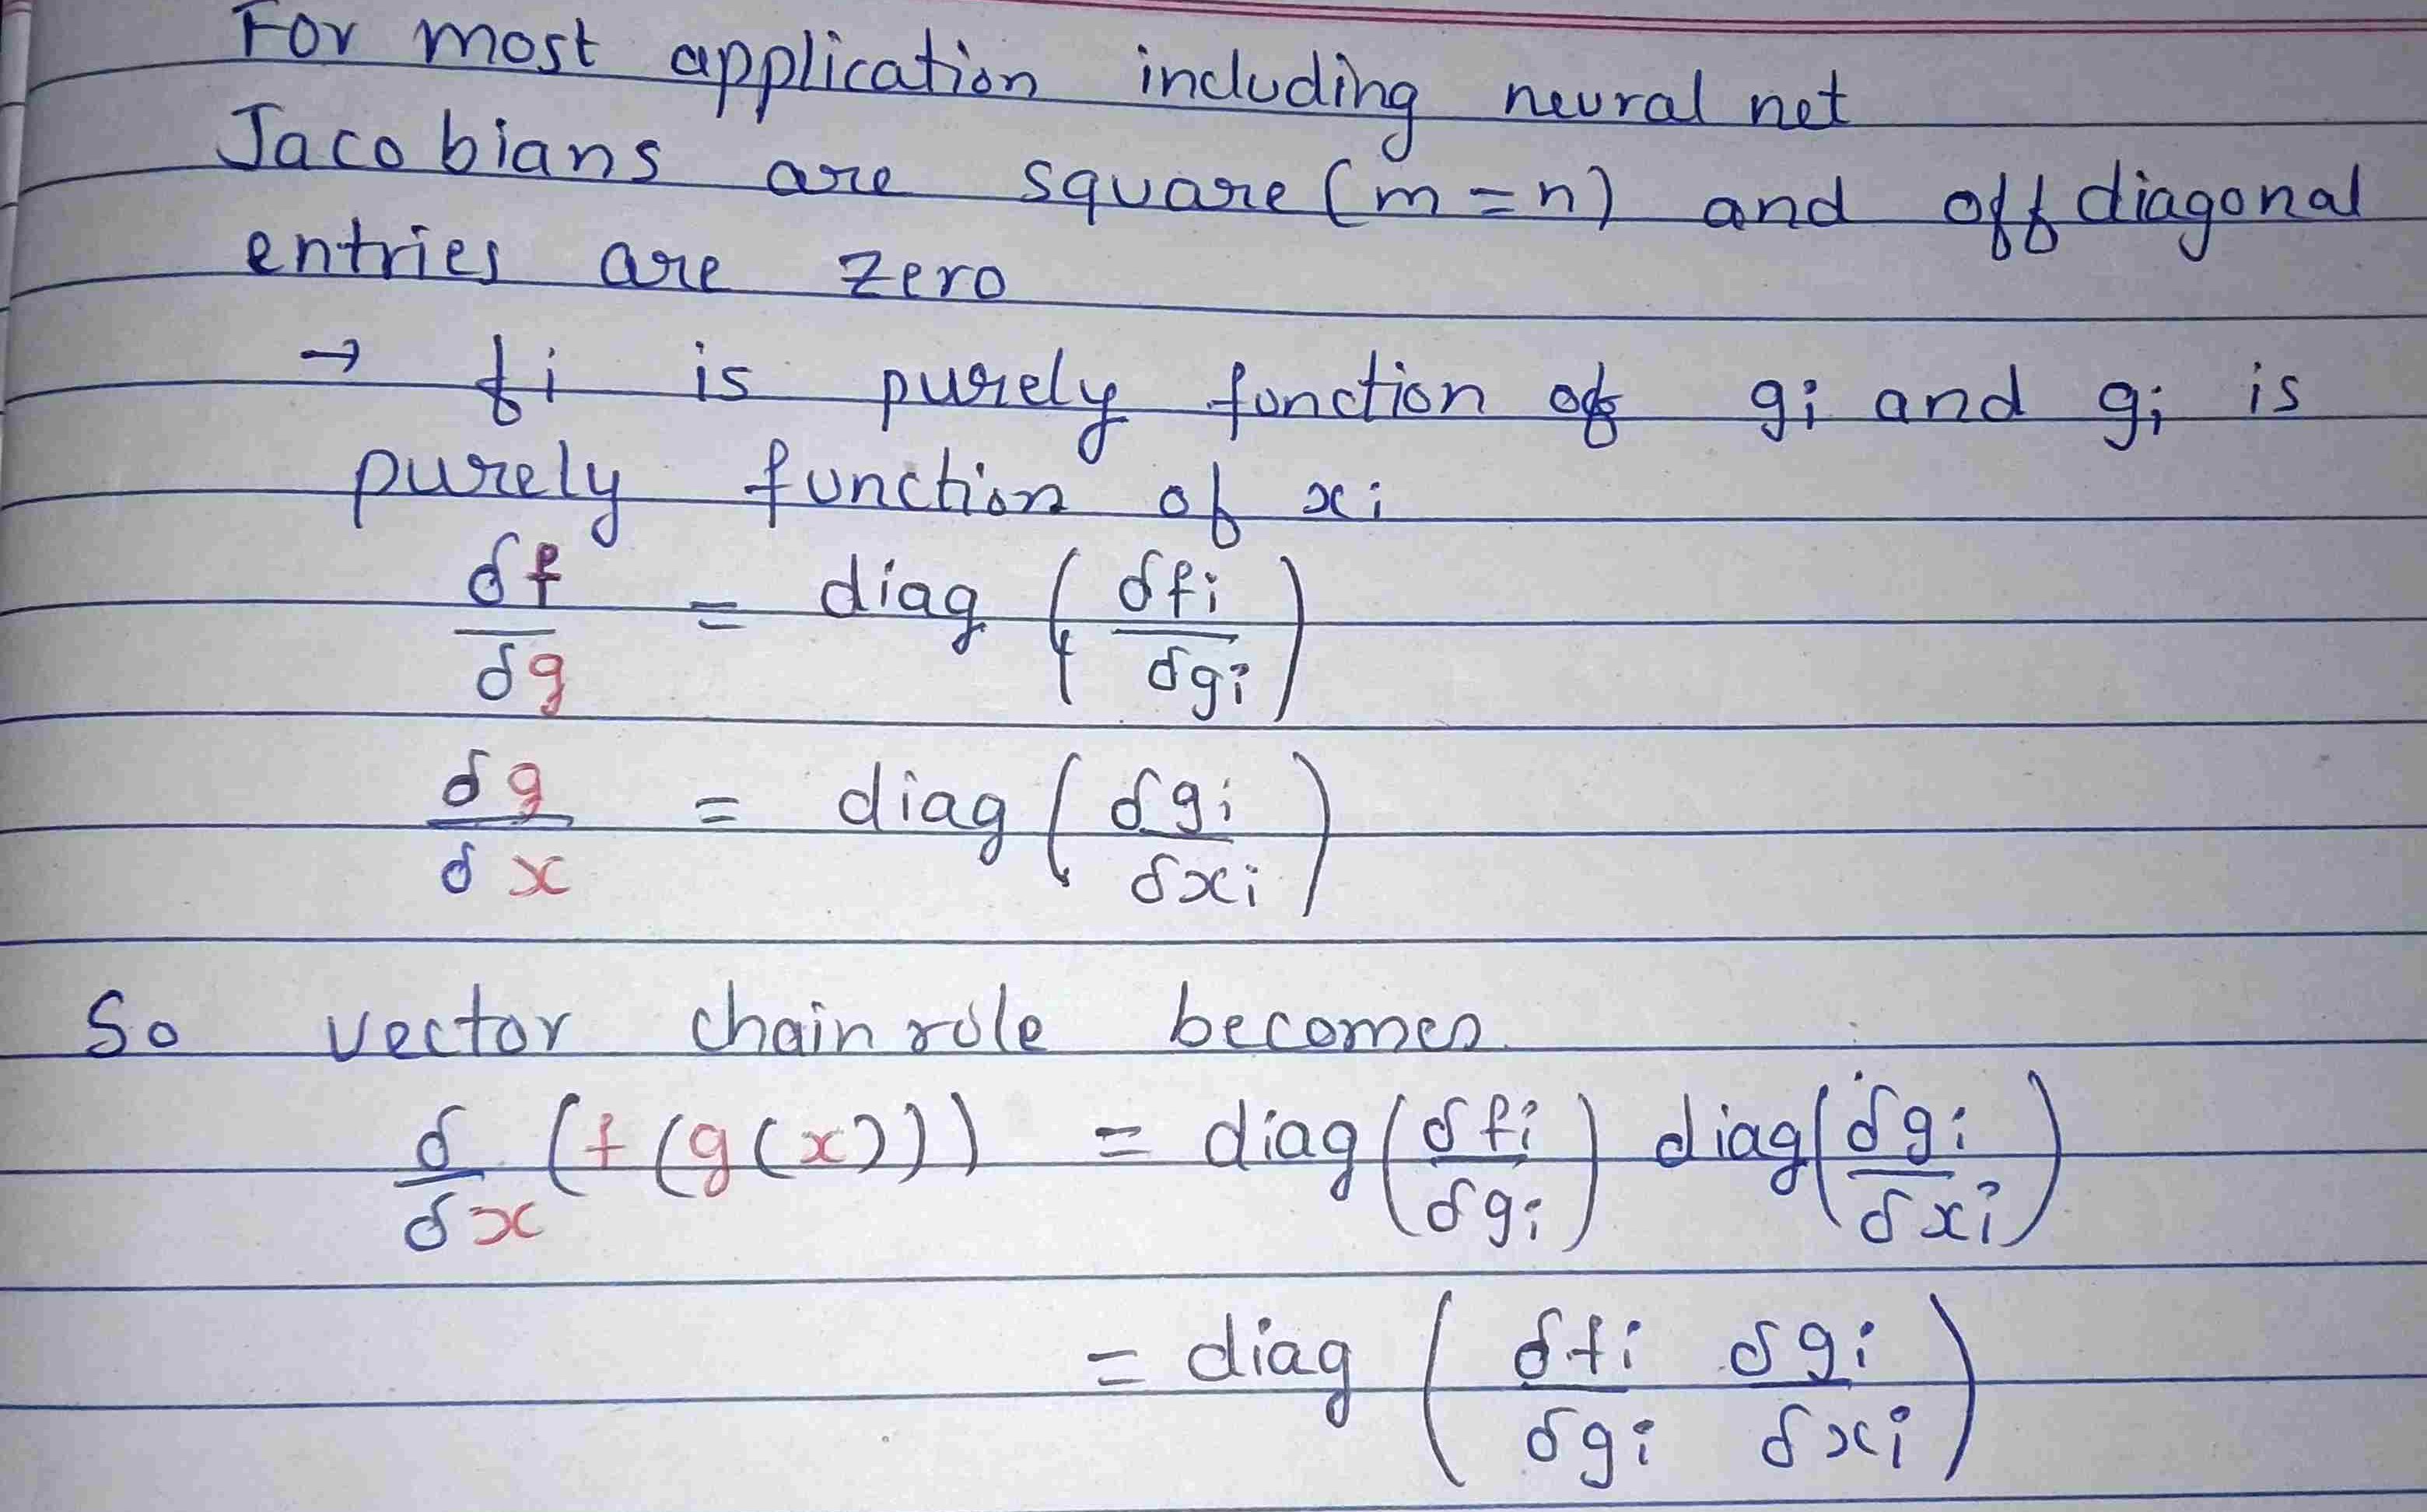 For most application including neural net
Jacobians are square (m = n) and off diagonal
entries are zero
→ fi is purely function of gi and gi is
purely function of xi
δf/δg = diag (δfi/δgi)
δg/δx = diag (δgi/δxi)
So vector chain rule becomes
δ/δx (f(g(x))) = diag(δfi/δgi) diag(δgi/δxi)
= diag (δfi/δgi δgi/δxi)